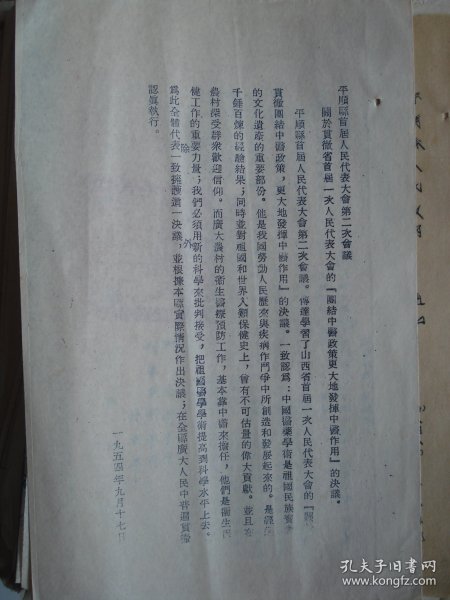 平順縣首届人民代表大會第二次會議
關於貫徹省首届一次人民代表大會的『團結中醫政策更大地發揮中醫作用』的決議。
平順縣首届人民代表大會第二次會議。傳達學習了山西省首届一次人民代表大會的『團
貫徹團結中醫政策，更大地發揮中醫作用』的決議。一致認爲：中國醫藥學術是祖國民族寶貴
的文化遺產的重要部份。他是我國勞動人民歷來與疾病作鬥爭中所創造和發展起來的。是經過
千錘百煉的經驗結果；同時並對祖國和世界人類保健史上，曾有不可估量的偉大貢獻。並且在
農村深受群衆歡迎信仰。而廣大農村的衛生醫療預防工作，基本靠中醫來擔任，他們是衛生保
健工作的重要力量；我們必須用新的科學來批判接受，把祖國醫學學術提高到科學水平上去。
除 外
爲此全體代表一致擁護這一決議，並根據本縣實際情況作出決議；在全縣廣大人民中普遍貫徹
認眞執行。
一九五四年九月十七日
孔夫子旧书网
www.kongfz.com